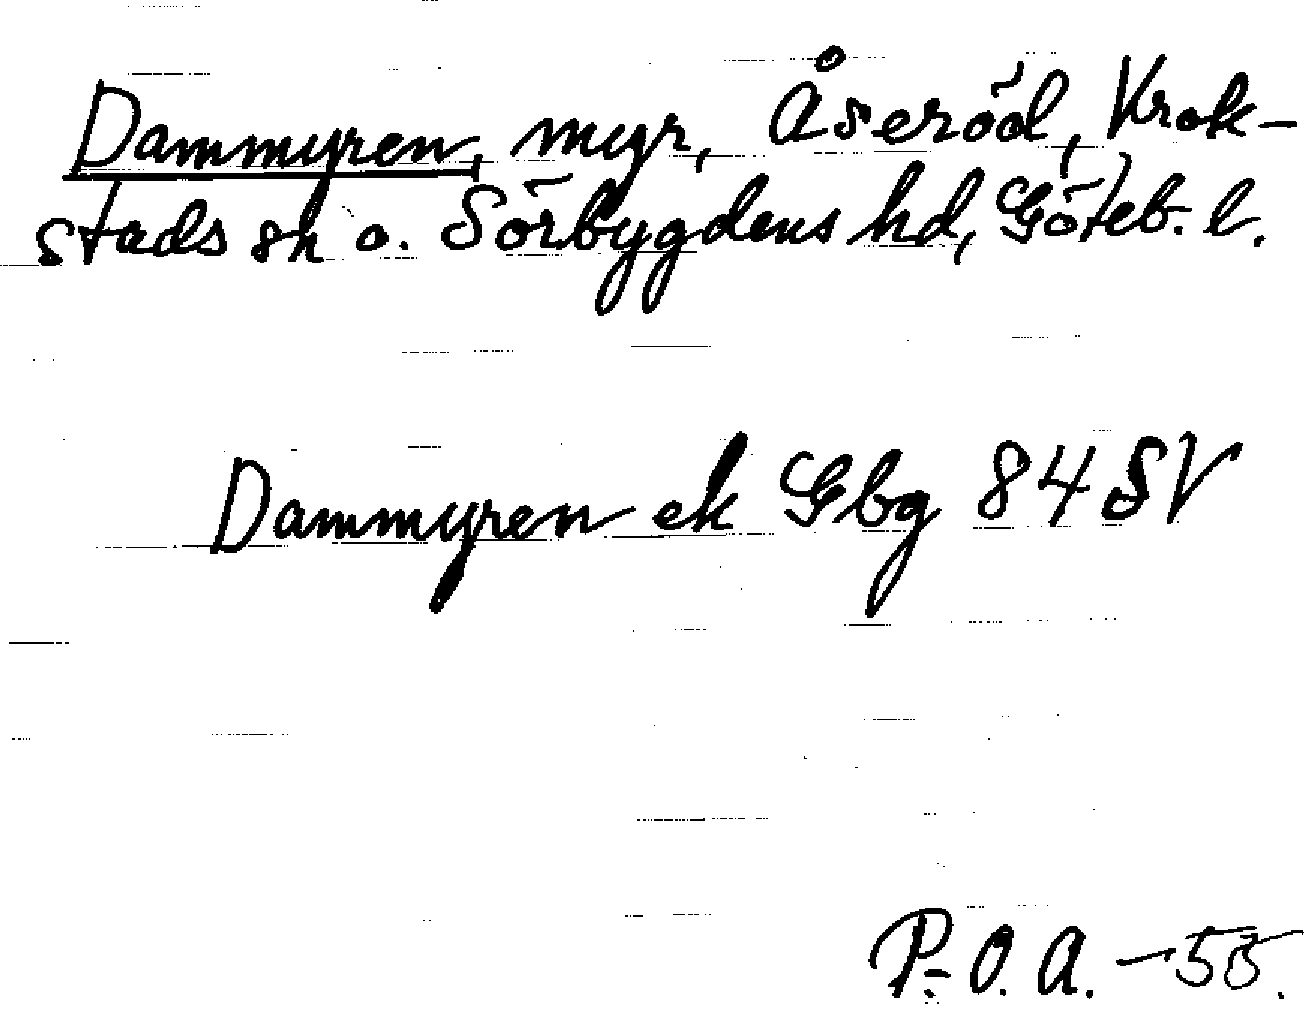 Dammyren, myr, Åseröd, Krok-
stads sn o. Sörbygdens hd, Göteb. l.
Dammyren ek Gbg 84 SV
P. O. A. -55.